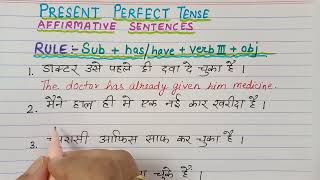 PRESENT PERFECT TENSE
AFFIRMATIVE SENTENCES
RULE:- Sub + has/have + verb III + obj
1. डाक्टर उसे पहले ही दवा दे चुका है ।
The doctor has already given him medicine.
2. मैंने हाल ही मे एक नई कार खरीदा है ।
3. आफिस साफ कर चुका है ।
चुके है ।